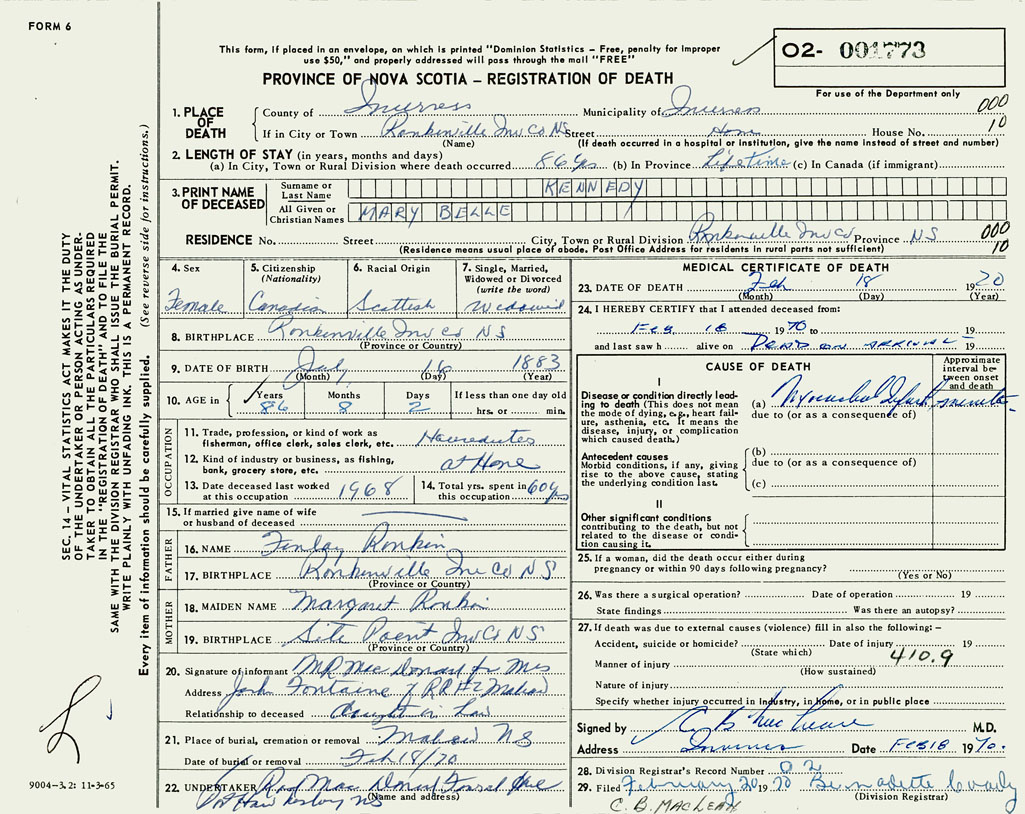 FORM 6
This form, if placed in an envelope, on which is printed "Dominion Statistics – Free, penalty for improper
use $50," and properly addressed will pass through the mail "FREE"
PROVINCE OF NOVA SCOTIA – REGISTRATION OF DEATH
O2- 001773
For use of the Department only
000
10
1. PLACE OF DEATH
County of Inverness Municipality of Inverness
If in City or Town Rankinville Inv Co NS Street Home House No.
(Name) (If death occurred in a hospital or institution, give the name instead of street and number)
2. LENGTH OF STAY (in years, months and days)
(a) In City, Town or Rural Division where death occurred 86 yrs (b) In Province Lifetime (c) In Canada (if immigrant)
3. PRINT NAME OF DECEASED
Surname or Last Name KENNEDY
All Given or Christian Names MARY BELLE
RESIDENCE No. Street City, Town or Rural Division Rankinville Inv Co Province NS
000
10
(Residence means usual place of abode. Post Office Address for residents in rural parts not sufficient)
4. Sex
Female
5. Citizenship (Nationality)
Canadian
6. Racial Origin
Scottish
7. Single, Married, Widowed or Divorced (write the word)
Widowed
8. BIRTHPLACE Rankinville Inv Co NS
(Province or Country)
9. DATE OF BIRTH July 16 1883
(Month) (Day) (Year)
10. AGE in Years Months Days If less than one day old
86 8 2 hrs. or min.
OCCUPATION
11. Trade, profession, or kind of work as
fisherman, office clerk, sales clerk, etc. Houseduties
12. Kind of industry or business, as fishing,
bank, grocery store, etc. at Home
13. Date deceased last worked
at this occupation 1968
14. Total yrs. spent in
this occupation 60 yrs
15. If married give name of wife
or husband of deceased
FATHER
16. NAME Finlay Rankin
17. BIRTHPLACE Rankinville Inv Co NS
(Province or Country)
MOTHER
18. MAIDEN NAME Margaret Rankin
19. BIRTHPLACE Site Point Inv Co NS
(Province or Country)
20. Signature of informant MR Mac Donald for Mrs
Address John Fontaine RR#2 Mabou
Relationship to deceased Daught in Law
21. Place of burial, cremation or removal Mabou NS
Date of burial or removal Feb 18/70
22. UNDERTAKER Rod Mac Donald Funeral Home
Port Hawkesbury NS
(Name and address)
MEDICAL CERTIFICATE OF DEATH
23. DATE OF DEATH Feb 18 1970
(Month) (Day) (Year)
24. I HEREBY CERTIFY that I attended deceased from:
FEB 18 1970 to 19
and last saw h alive on DEAD ON ARRIVAL 19
CAUSE OF DEATH
Approximate interval between onset and death
I
Disease or condition directly leading to death (This does not mean the mode of dying, e.g., heart failure, asthenia, etc. It means the disease, injury, or complication which caused death.)
(a) Myocardial Infarct minutes
due to (or as a consequence of)
Antecedent causes
Morbid conditions, if any, giving rise to the above cause, stating the underlying condition last.
(b)
due to (or as a consequence of)
(c)
II
Other significant conditions
contributing to the death, but not related to the disease or condition causing it.
25. If a woman, did the death occur either during
pregnancy or within 90 days following pregnancy?
(Yes or No)
26. Was there a surgical operation? Date of operation 19
State findings Was there an autopsy?
27. If death was due to external causes (violence) fill in also the following: –
Accident, suicide or homicide? Date of injury 19
(State which) 410.9
Manner of injury
(How sustained)
Nature of injury
Specify whether injury occurred in Industry, in Home, or in public place
Signed by C B MacLean M.D.
Address Inverness Date FEB 18 1970.
28. Division Registrar's Record Number 02
29. Filed February 20 1970 Bernadette Coady
(Division Registrar)
C. B. MACLEAN
SEC. 14 – VITAL STATISTICS ACT MAKES IT THE DUTY
OF THE UNDERTAKER OR PERSON ACTING AS UNDER-
TAKER TO OBTAIN ALL THE PARTICULARS REQUIRED
IN THE "REGISTRATION OF DEATH" AND TO FILE THE
SAME WITH THE DIVISION REGISTRAR WHO SHALL ISSUE THE BURIAL PERMIT.
WRITE PLAINLY WITH UNFADING INK. THIS IS A PERMANENT RECORD.
Every item of information should be carefully supplied. (See reverse side for instructions.)
9004-3.2: 11-3-65